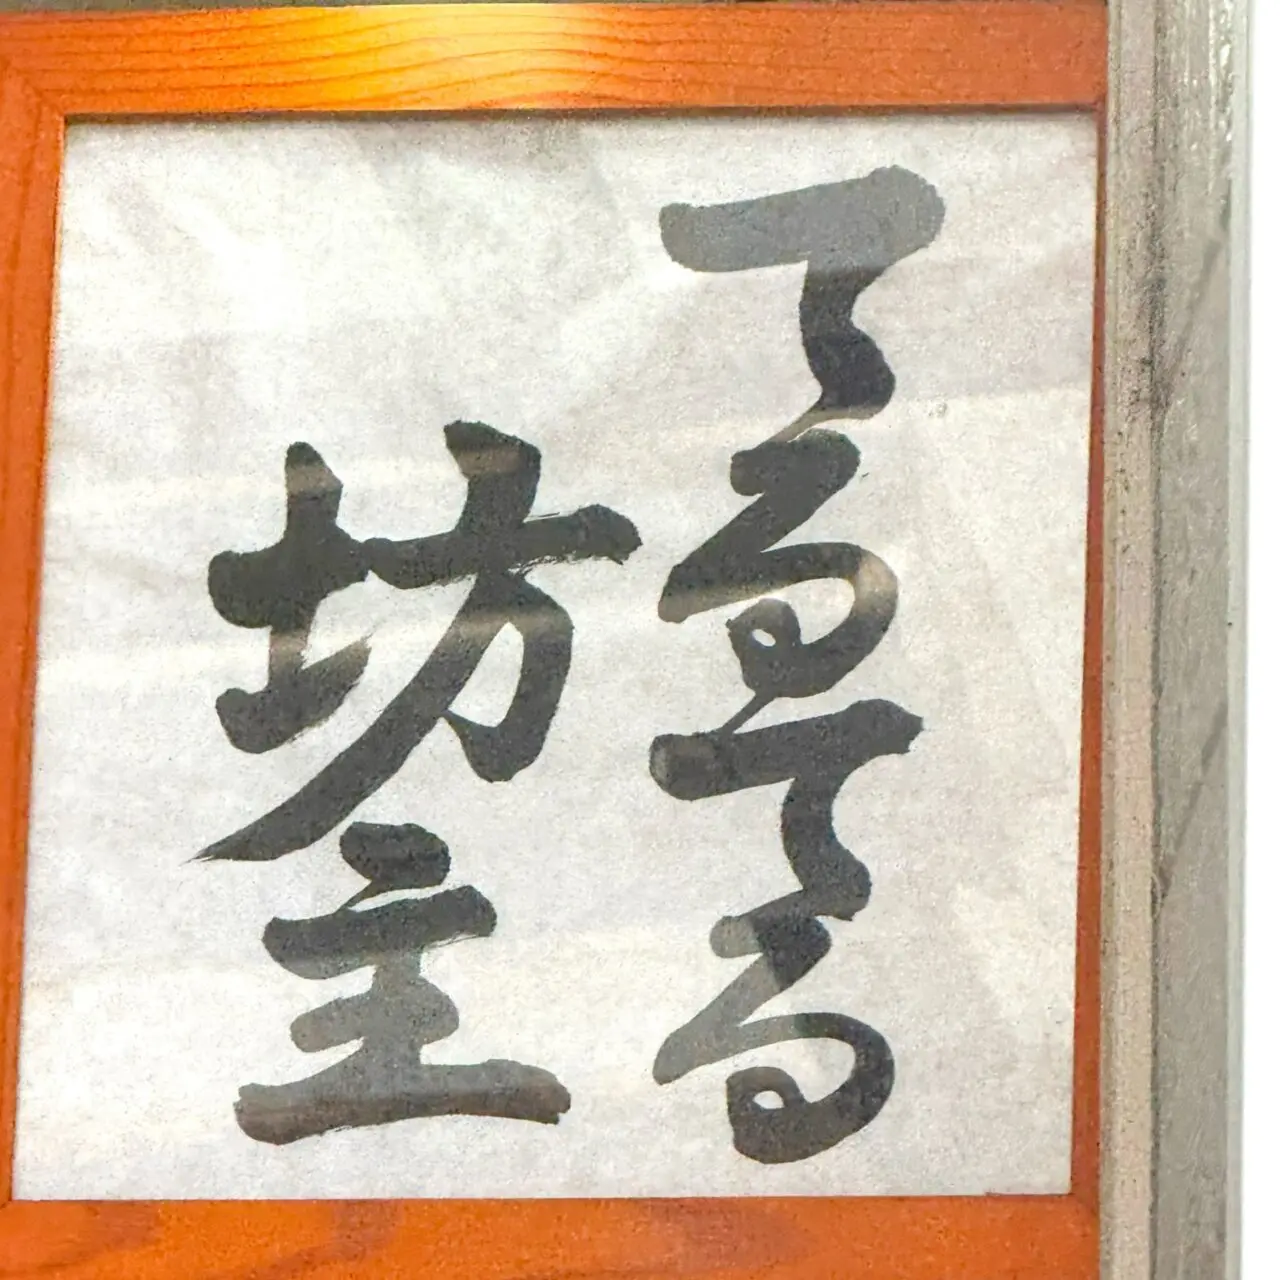 てるてる
坊主